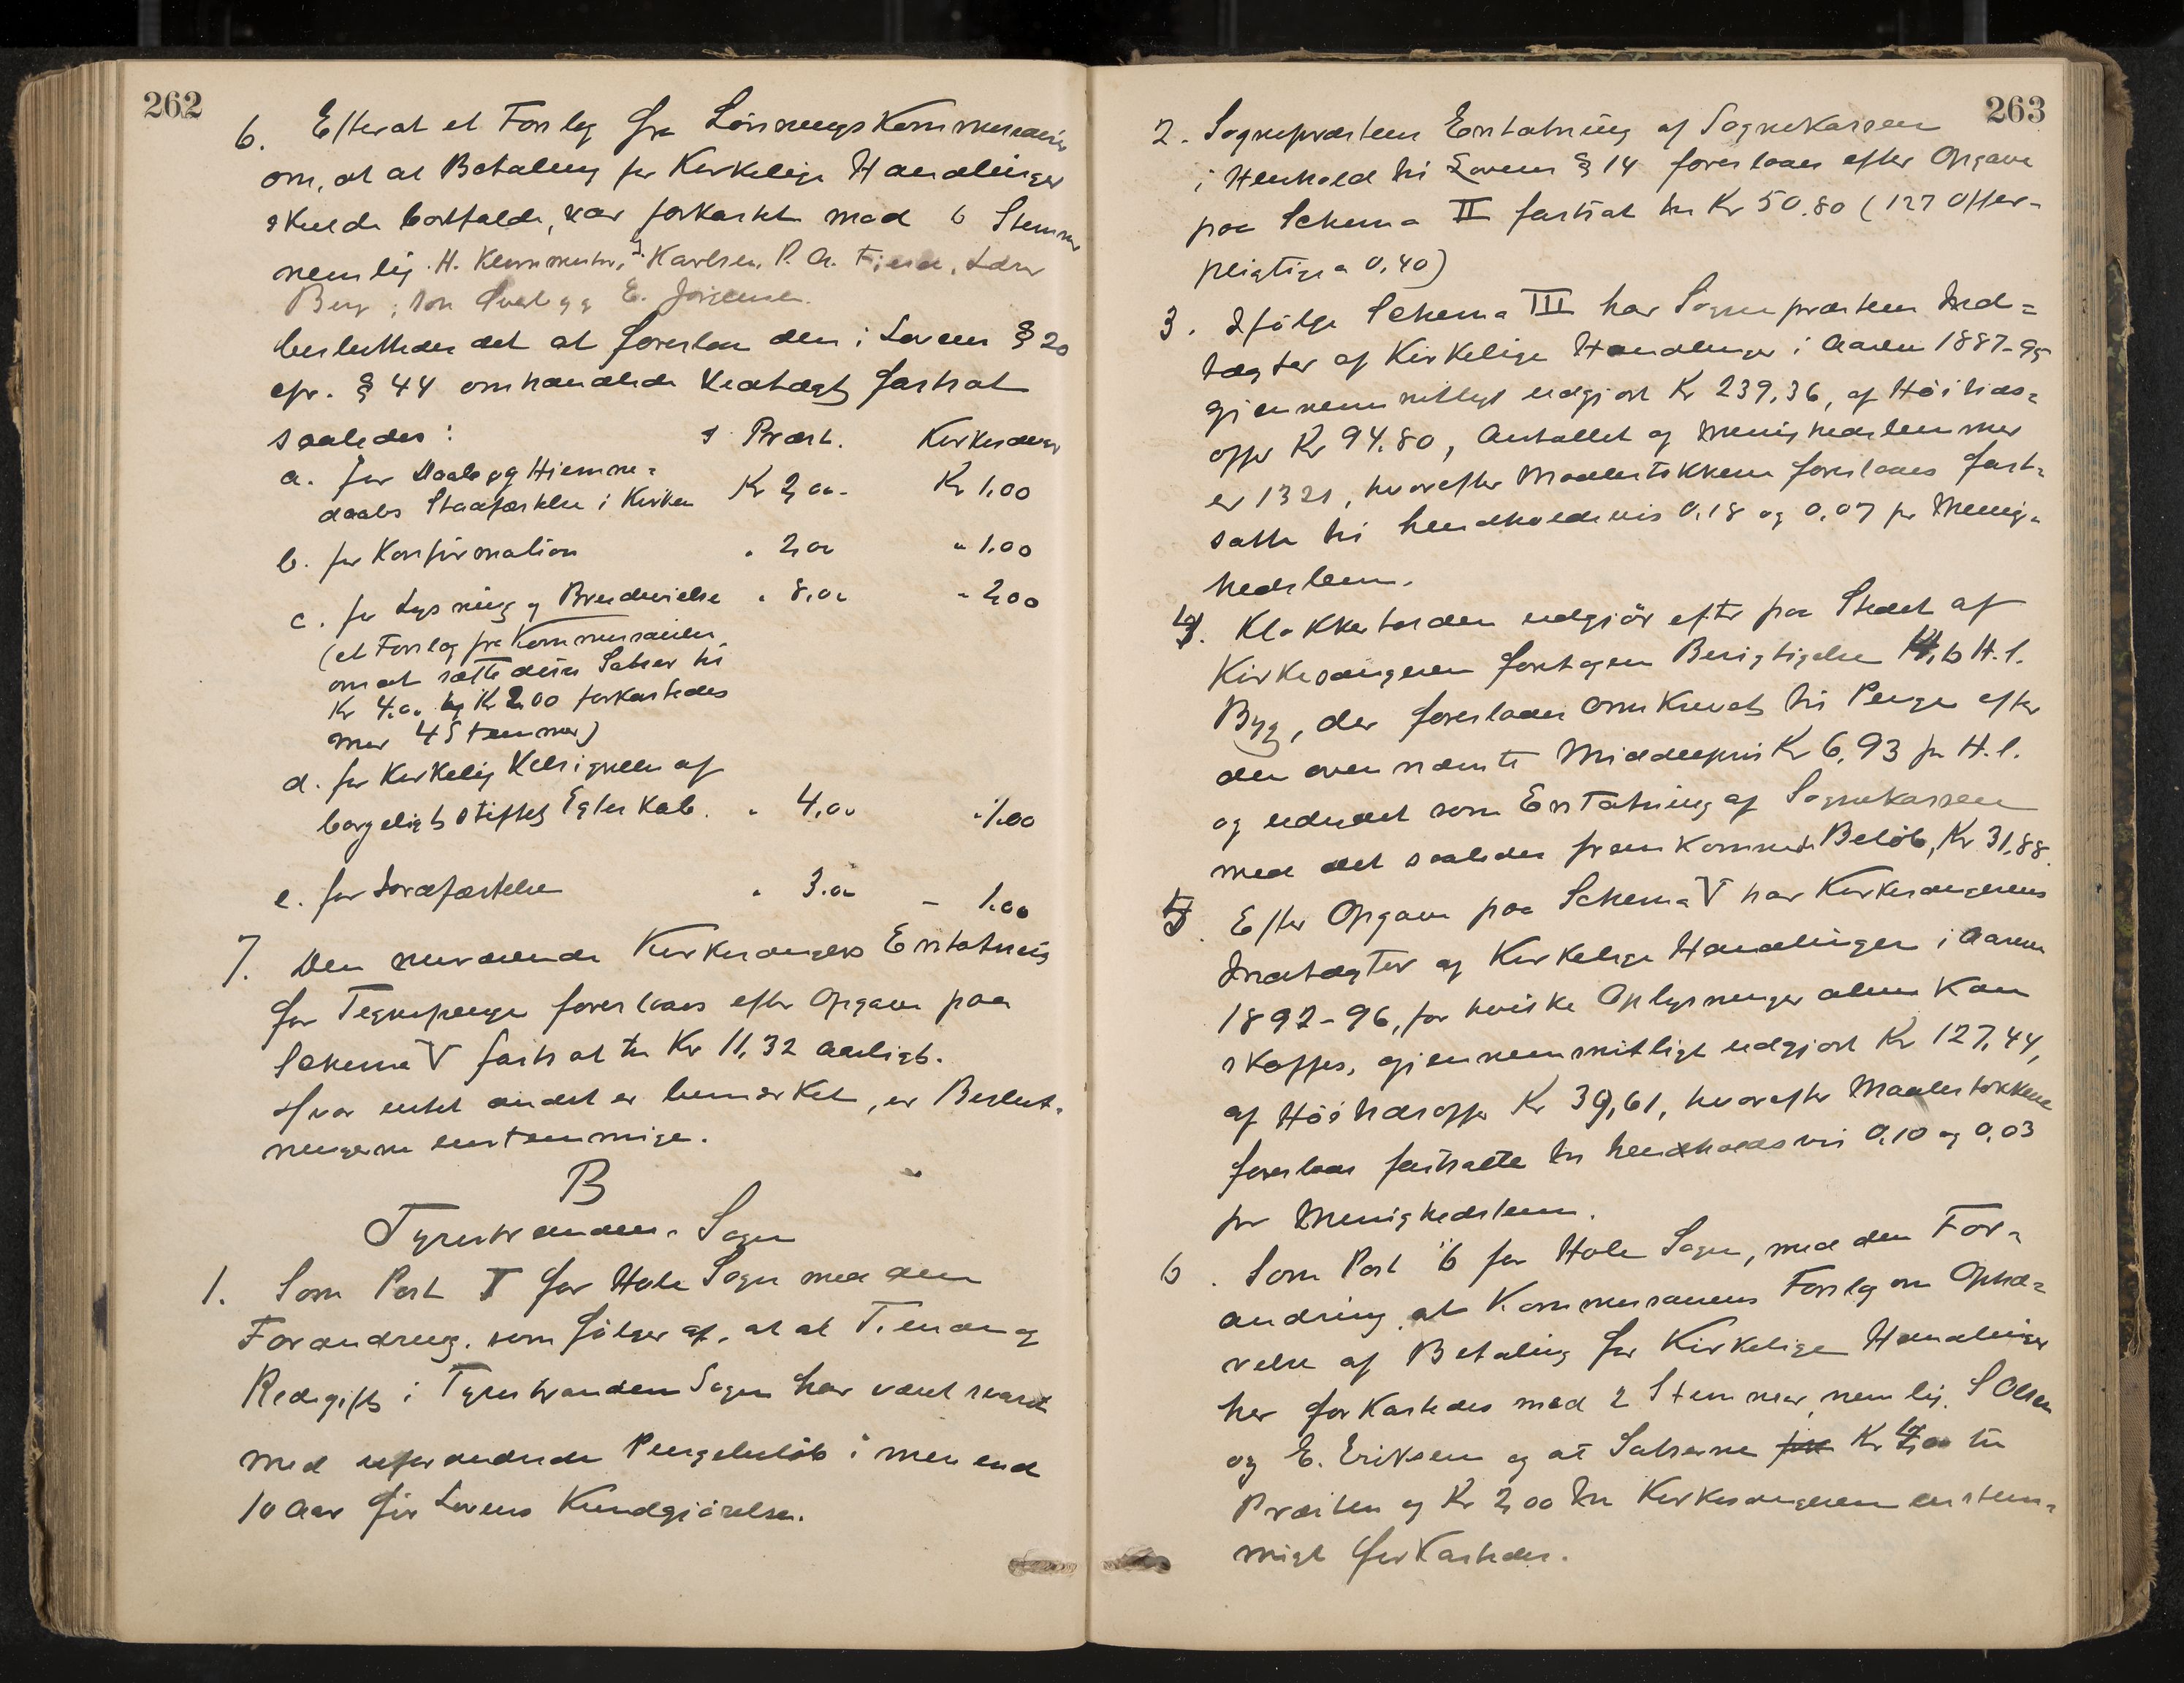 262
6. Efterat et Forslag fra Lönningskommissionen
om, at al Betaling for Kirkelige Handlinger
skulde bortfalde, var forkastet mod 6 Stemmer
nemlig H. Klemmetsen, J. Karlsen, P. A.
Berg, E. Jörgensen.
besluttedes det at foreslaa den i Loven § 20
cfr. § 44 omhandlede Vedtægt fastsat
saaledes: Præst. Kirkesanger
a. for Daab og Hjemme-
daabs Stadfæstelse i Kirken Kr 2,00 Kr 1.00
b. for Konfirmation " 2,00 " 1.00
c. for Lysning og Brudevielse " 8,00 " 2,00
(et Forslag fra Kommissionen
om at sætte disse Satser til
Kr 4.00 og Kr 2.00 forkastedes
mod 4 Stemmer)
d. for Kirkelig Velsignelse af
borgeligt stiftet Egteskab. " 4,00 " 1.00
e. for Jordfæstelse " 3.00 - 1.00
7. Den nuværende Kirkesangers Erstatning
for Tegnepenge foreslaaes efter Opgave paa
Schema V fastsat til Kr 11,32 aarligt.
Hvor intet andet er bemærket, er Beslut-
ningerne enstemmige.
B
Tyristrandens Sogn
1. Som Post I for Hole Sogn med den
Forandring, som følger af, at al Tiende og
Redegift i Tyristrandens Sogn har været svaret
med uforandrede Pengebelöb i mer end
10 Aar för Lovens Kundgjörelse.
263
2. Sogneprestens Erstatning af Sognekassen
i Henhold til Lovens § 14 foreslaaes efter Opgave
paa Schema II fastsat til Kr 50.80 (127 Offer-
pligtige a 0,40)
3. Ifölge Schema III har Sogneprestens Ind-
tægter af Kirkelige Handlinger i Aarene 1887-95
gjennemsnitligt udgjort Kr 239,36, af Höitids-
offer Kr 94.80, Antallet af Menighedslemmer
er 1321, hvorefter Maalestokken foreslaaes fast-
satte til henholdsvis 0,18 og 0,07 pr Menig-
hedslem.
4. Klokkertolden udgjör efter paa Stedet af
Kirkesangeren foretagen Berigtigelse 4,6 H.l.
Byg, der foreslaaes omskrevet til Penge efter
den ovennævnte Middelpris Kr 6,93 pr H.l.
og udredet som Erstatning af Sognekassen
med det saaledes fremkomne Belöb, Kr 31,88.
5. Efter Opgave paa Schema V har Kirkesangerens
Indtægter af Kirkelige Handlinger i Aarene
1892-96, for hvilke Oplysninger alene kan
skaffes, gjennemsnitligt udgjort Kr 127,44,
af Höitidsoffer Kr 39,61, hvorefter Maalestokkene
foreslaaes fastsatte til henholdsvis 0,10 og 0,03
pr Menighedslem.
6. Som Post 6 for Hole Sogn, med den For-
andring, at Kommissionens Forslag om Ophæ-
velse af Betaling for Kirkelige Handlinger
her forkastedes mod 2 Stemmer, nemlig S Olsen
og E. Eriksen og at Satserne Kr 4,00 til
Præsten og Kr 2,00 til Kirkesangeren enstem-
migt forkastedes.